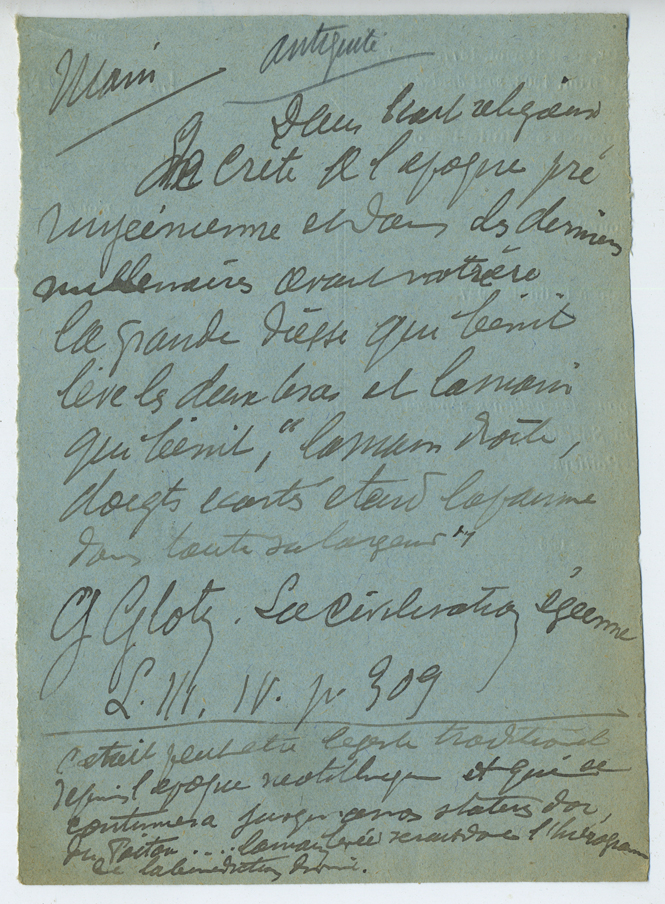 Main
antiquité
Dans l'art religieux
La Crète de l'époque pré
mycénienne et dans les derniers
millenaires avant notre ère
la grande déesse qui bénit
lève les deux bras et la main
qui bénit, "la main droite,
doigts écartés étend la paume
dans toute sa largeur"
G Glotz. La civilisation égéenne
L. III, IV. p 309
c'était peut etre le geste traditionel
depuis l'époque neolithique et qui se
continuera jusqu'a nos staters d'or,
du Poitou .... la main levée serait donc l'hiérogram
de la benediction divine.